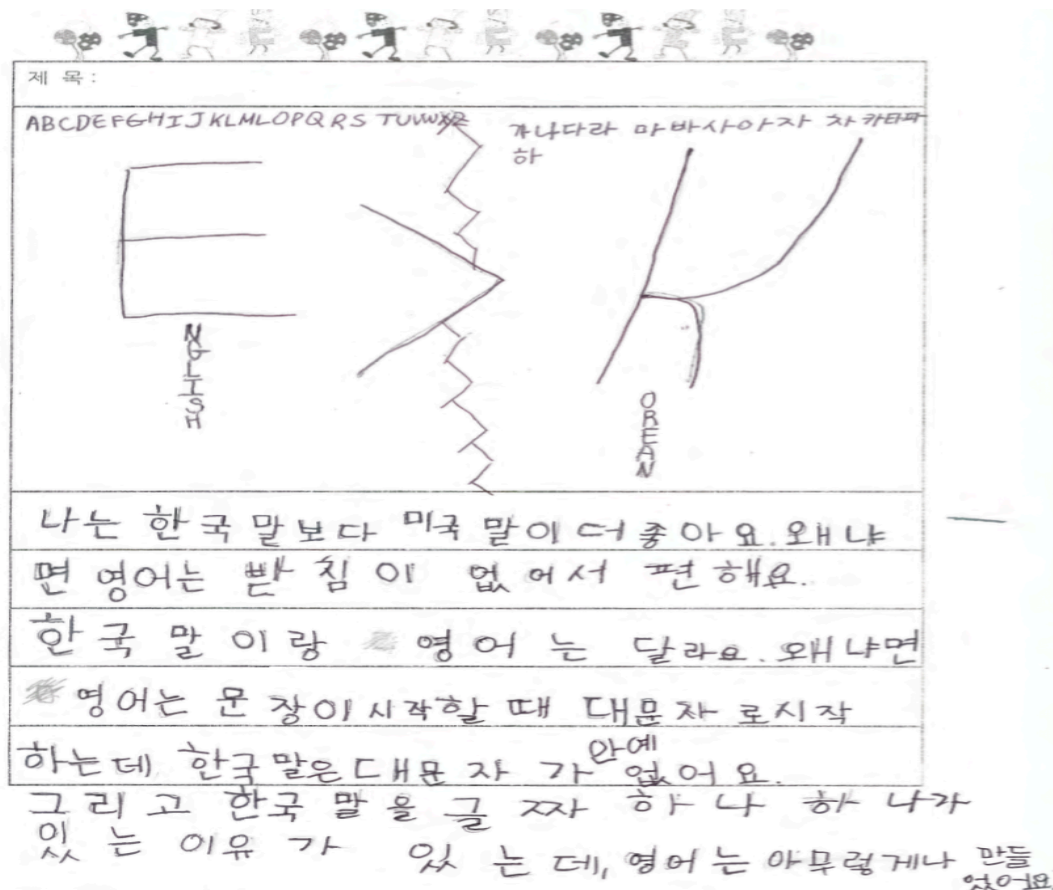 제 목 :
ABCDEFGHIJKLMLOPQRS TUVWXYZ
가나다라 마바사아자 차카타파
하
E > K
NGLISH
OREAN
나는 한국말보다 미국 말이 더 좋아요. 왜냐
면 영어는 받침이 없어서 편해요.
한국말이랑 영어는 달라요. 왜냐면
영어는 문장이 시작할 때 대문자로 시작
하는데 한국말은 대문자가 안예 없어요.
그리고 한국말을 글짜 하나 하나가
있는 이유가 있는데, 영어는 아무렇게나 만들
었어요